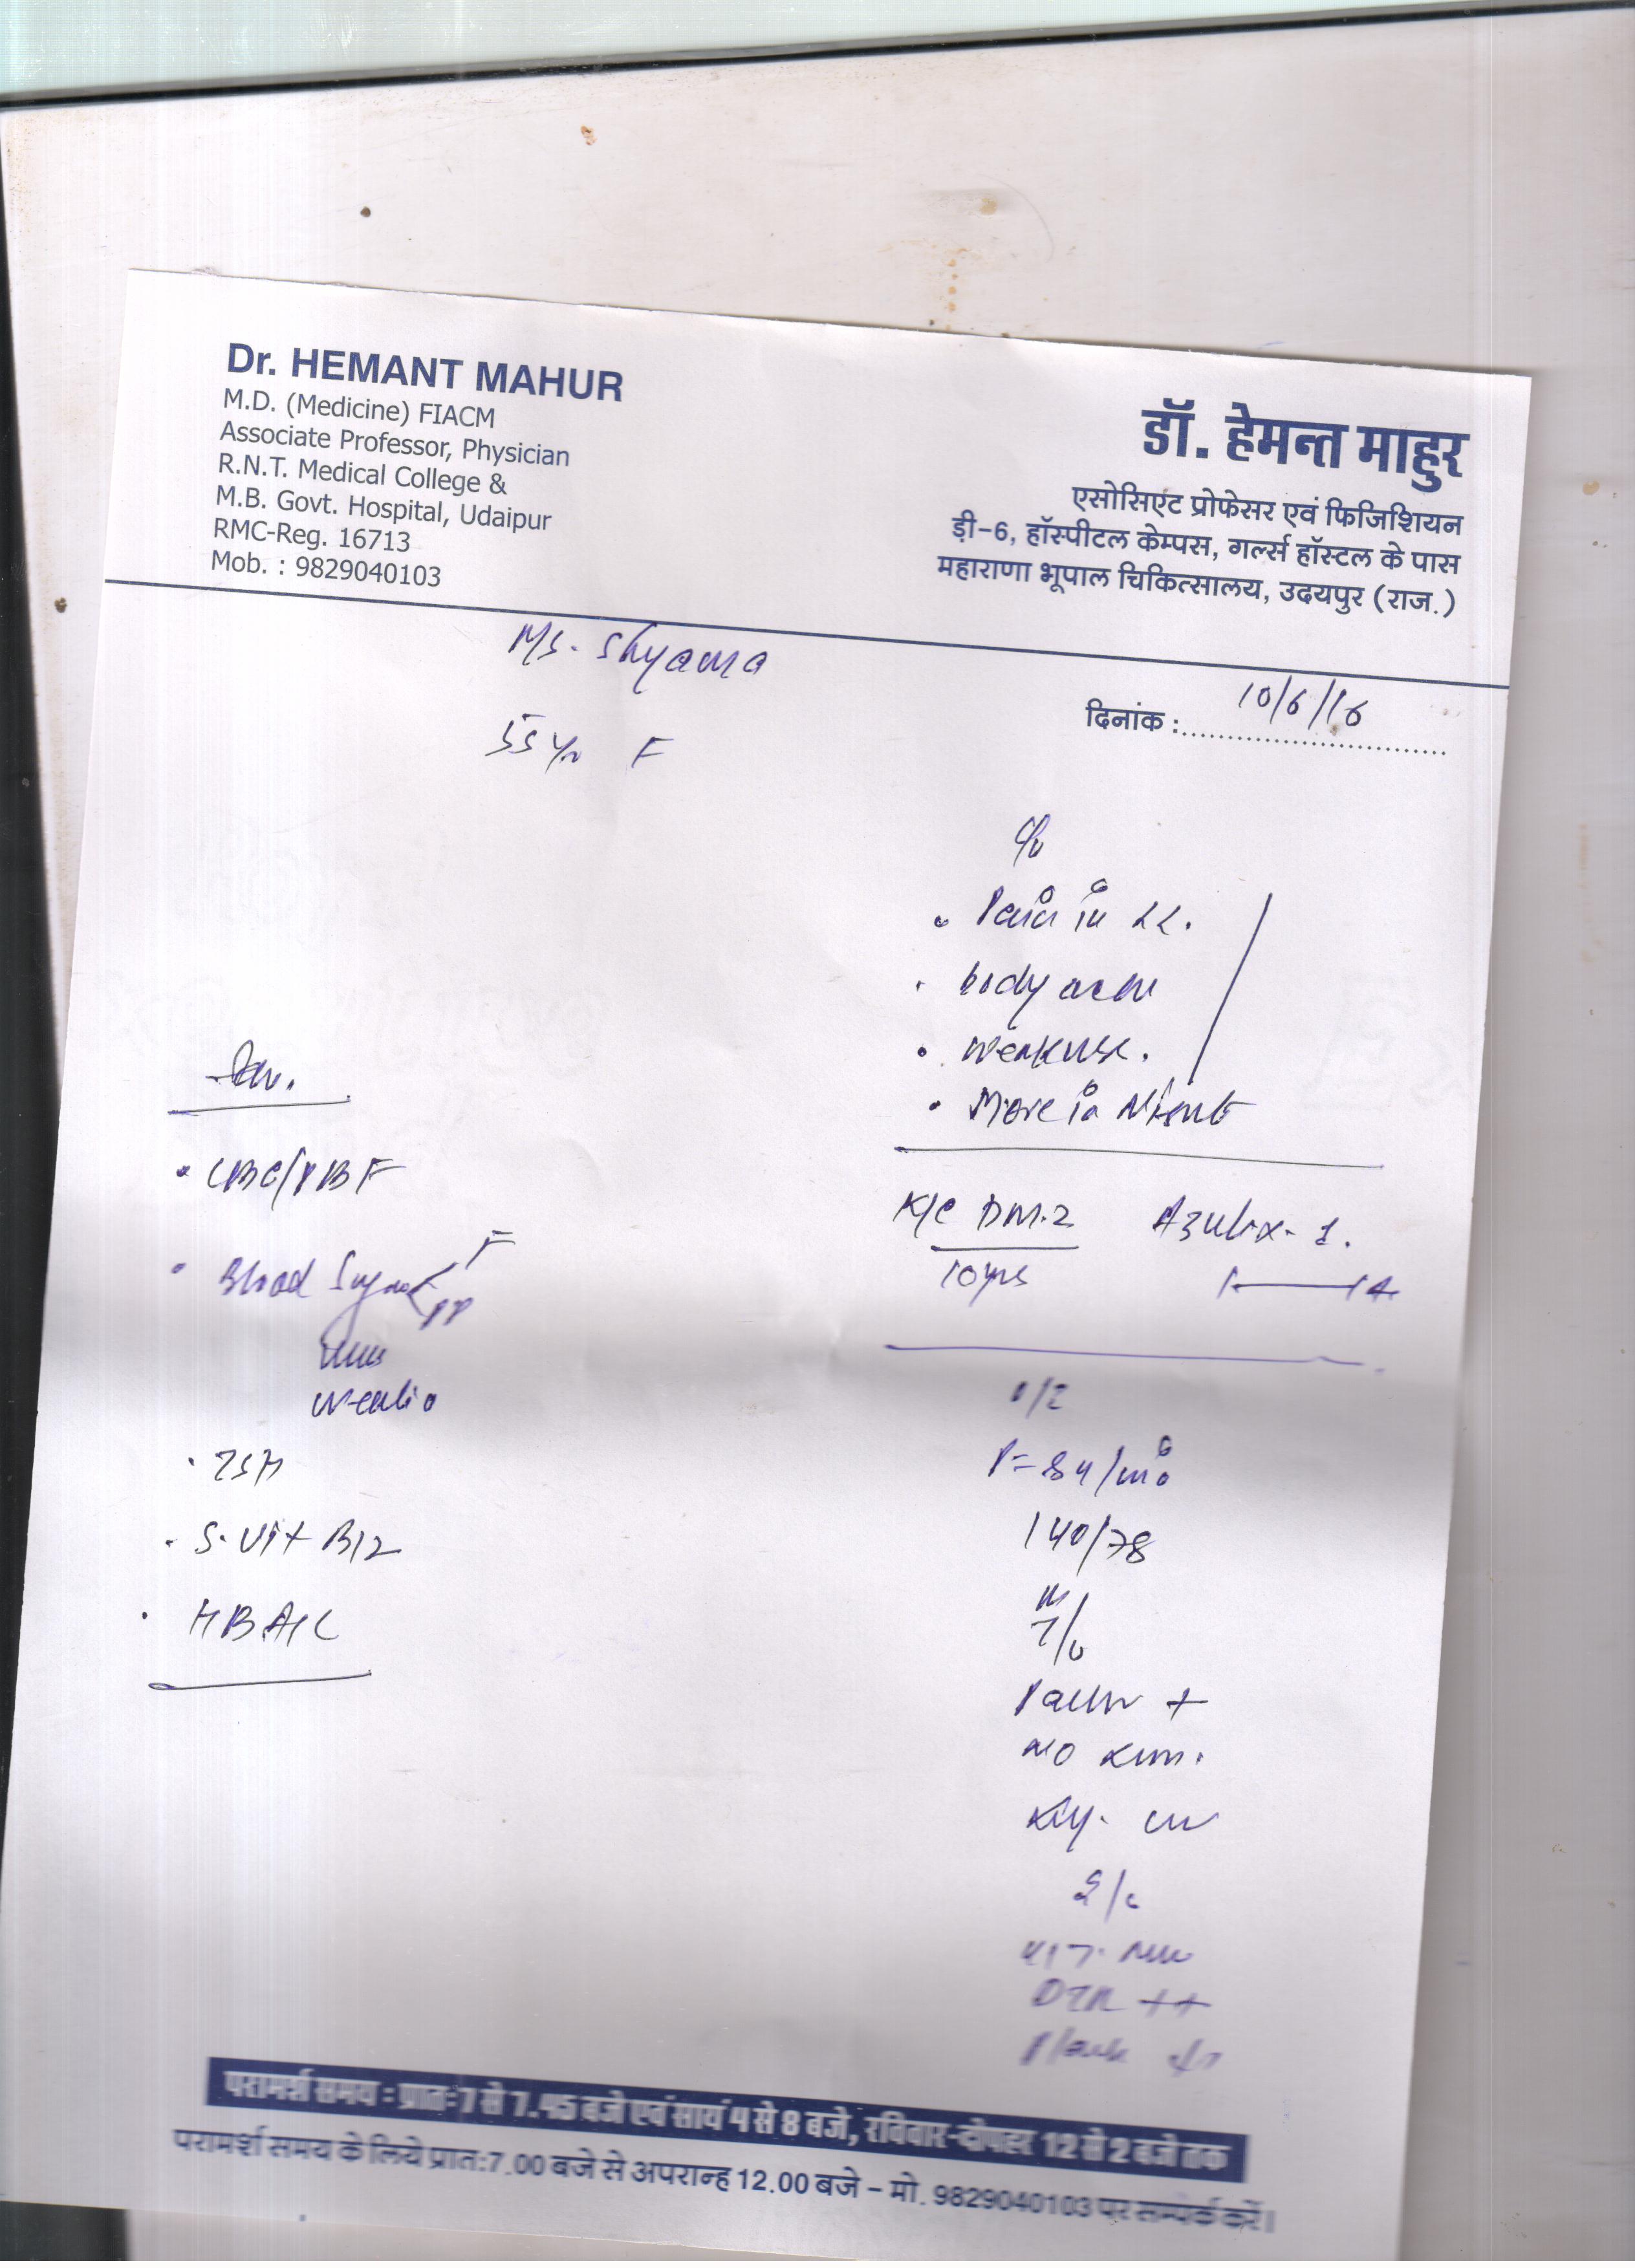 Dr. HEMANT MAHUR
M.D. (Medicine) FIACM
Associate Professor, Physician
R.N.T. Medical College &
M.B. Govt. Hospital, Udaipur
RMC-Reg. 16713
Mob. : 9829040103
डॉ. हेमन्त माहुर
एसोसिएट प्रोफेसर एवं फिजिशियन
ड़ी-6, हॉस्पीटल केम्पस, गर्ल्स हॉस्टल के पास
महाराणा भूपाल चिकित्सालय, उदयपुर (राज.)
Ms. Shyama
दिनांक : 10/6/16
55 yr F
c/o
• Pain in LL.
• body ache
• weakness.
• More in Night
K/C DM.2
10 yrs
Azulix-1.
O/E
P=84/min
140/78
Pallor +
NO
DTR ++
Inv.
• CBC/PBF
• Blood Sugar F
PP
• TSH
• S. Vit B12
• HBA1C
परामर्श समय : प्रातः 7 से 7.45 बजे एवं सायं 4 से 8 बजे, रविवार-दोपहर 12 से 2 बजे तक
परामर्श समय के लिये प्रात:7.00 बजे से अपरान्ह 12.00 बजे - मो. 9829040103 पर सम्पर्क करें।